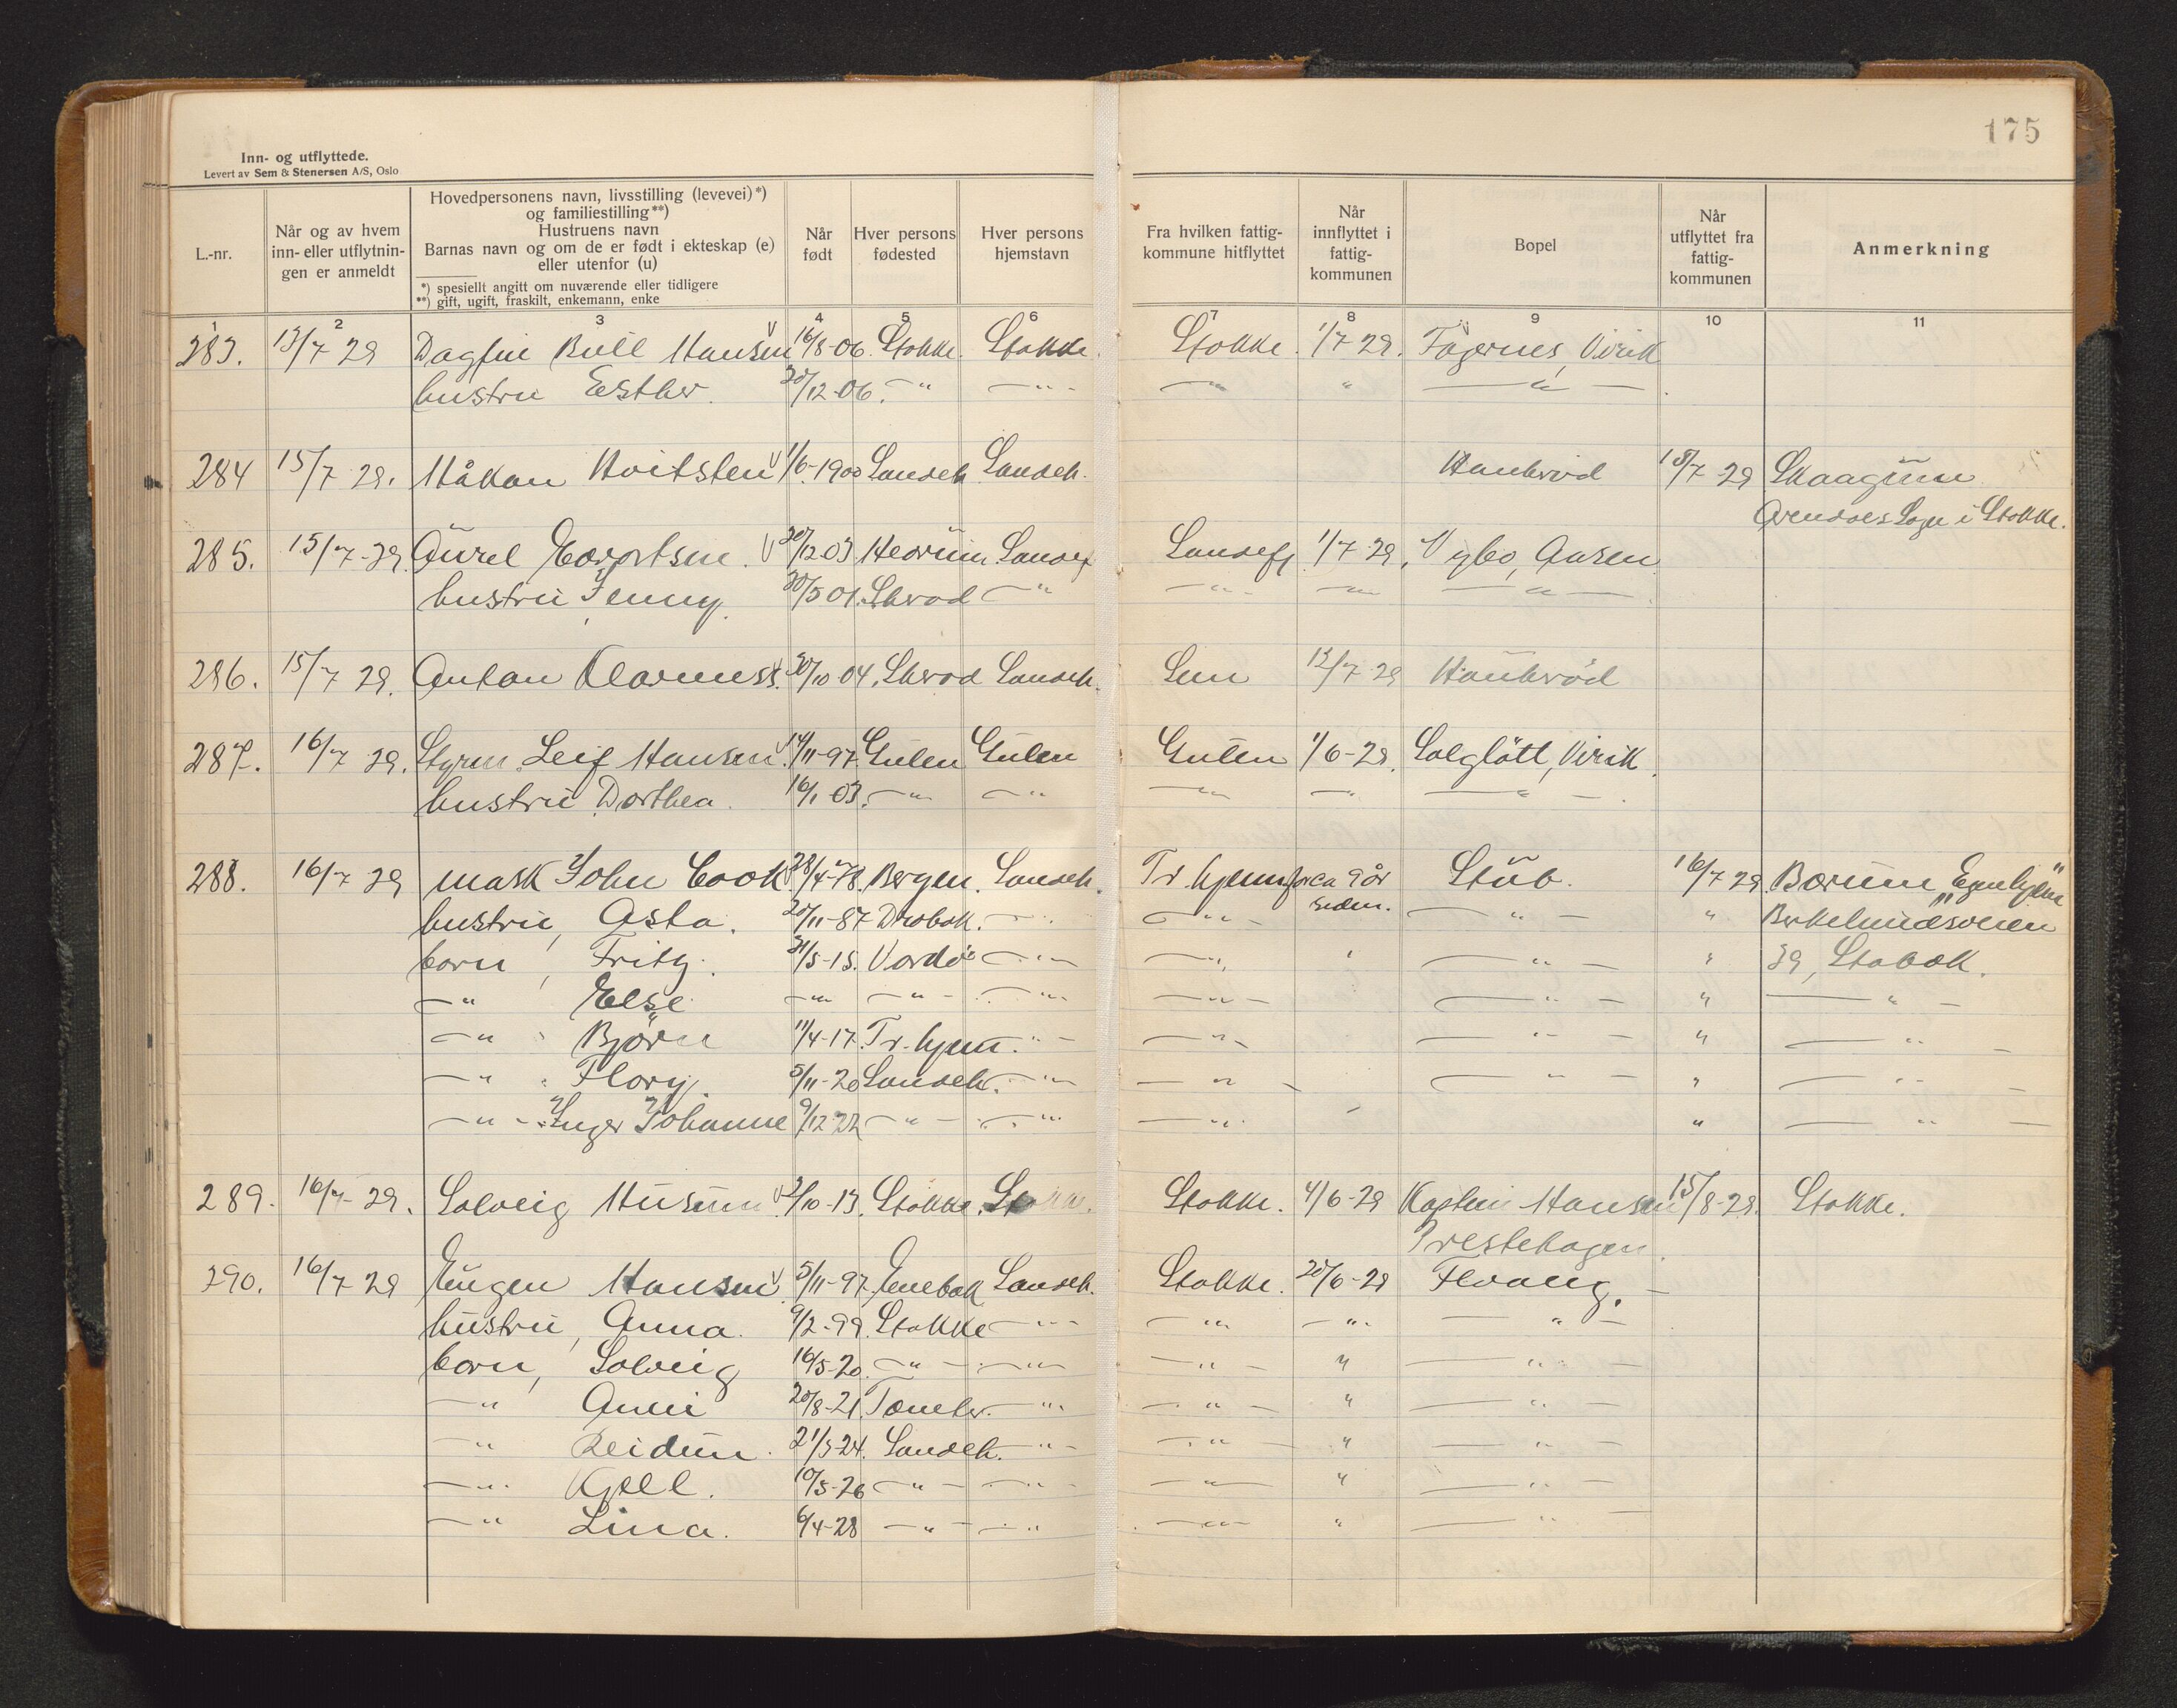 175
Inn- og utflyttede.
Levert av Sem & Stenersen A/S, Oslo
L.-nr.
Når og av hvem
inn- eller utflytnin-
gen er anmeldt
Hovedpersonens navn, livsstilling (levevei)*)
og familiestilling**)
Hustruens navn
Barnas navn og om de er født i ekteskap (e)
eller utenfor (u)
*) spesielt angitt om nuværende eller tidligere
**) gift, ugift, fraskilt, enkemann, enke
Når
født
Hver persons
fødested
Hver persons
hjemstavn
Fra hvilken fattig-
kommune hitflyttet
Når
innflyttet i
fattig-
kommunen
Bopel
Når
utflyttet fra
fattig-
kommunen
Anmerkning
1 2 3 4 5 6 7 8 9 10 11
283. 13/7 29 Dagfin Bull Hansen 16/8-06. Stokke. Stokke. Stokke. 1/7 29. Fagernes, Virik
hustru Esther. 20/12-06. -"- -"- -"- " -"-
284 15/7 29. Håkon Hvitsten 1/6-1900 Sandeh. Sandeh. Haukerød 15/7 29 Skaagum
i Stokke.
285. 15/7-29. Aurel 30/12-03 Hedrum Sandef Sandefj 1/7 29. Nybo, Aasen
hustru Jenny. 30/5 01. Skrad -"- -"- -"- -"-
286. 15/7 29. Anton Klavness. 30/10-04. Skrad Sandeh. Sem 12/7 29 Haukerød
287. 16/7 29. Styrm. Leif Hansen. 14/11-97. Gulen Gulen Gulen 1/6-29. Solgløtt, Virik.
hustru Dorthea. 16/1 03. -"- -"- -"- -"- -"-
288. 16/7 29 mask John Cook 28/4-78. Bergen. Sandeh. Tr.hjem for ca 9 år Stub. 16/7 29. Bærum "Egenhjem"
siden.
hustru, Asta. 20/11-87 Drøbak. -"- -"- -"- " Birkelundsveien
barn, Fritz. 31/5-15. Vardø -"- -"- ' -"- " 39, Stabæk.
-"- Else -"- -"- -"- -"- -"- " -"-
-"- Bjørn 11/4-17. Tr.hjem. -"- -"- -"- " -"-
-"- Flory. 5/11-20 Sandeh. -"- -"- -"- " -"-
-"- Inger Johanne 9/12-22 -"- -"- -"- - " -"-
289. 16/7-29. Solveig Husum 2/10-13. Stokke. Stokke. Stokke. 4/6-29 Kaptein Hansen 15/8-29. Stokke.
Prestehagen.
290. 16/7 29 Eugen Hansen 5/11-97. Enebak Sandeh. Stokke. 20/6-29 Flvang.
hustru, Anna. 9/2-99. Stokke -"- -"- -"- -"-
barn, Solveig 16/5-20. -"- -"- -"- " -"-
-"- Anni 20/8-21. -"- -"- " -"-
-"- Reidun. 21/3-24. Sandeh. -"- -"- " -"-
-"- Kjell. 10/5-26 -"- -"- -"- " -"-
-"- Lina. 6/4-28 -"- -"- -"- " -"-